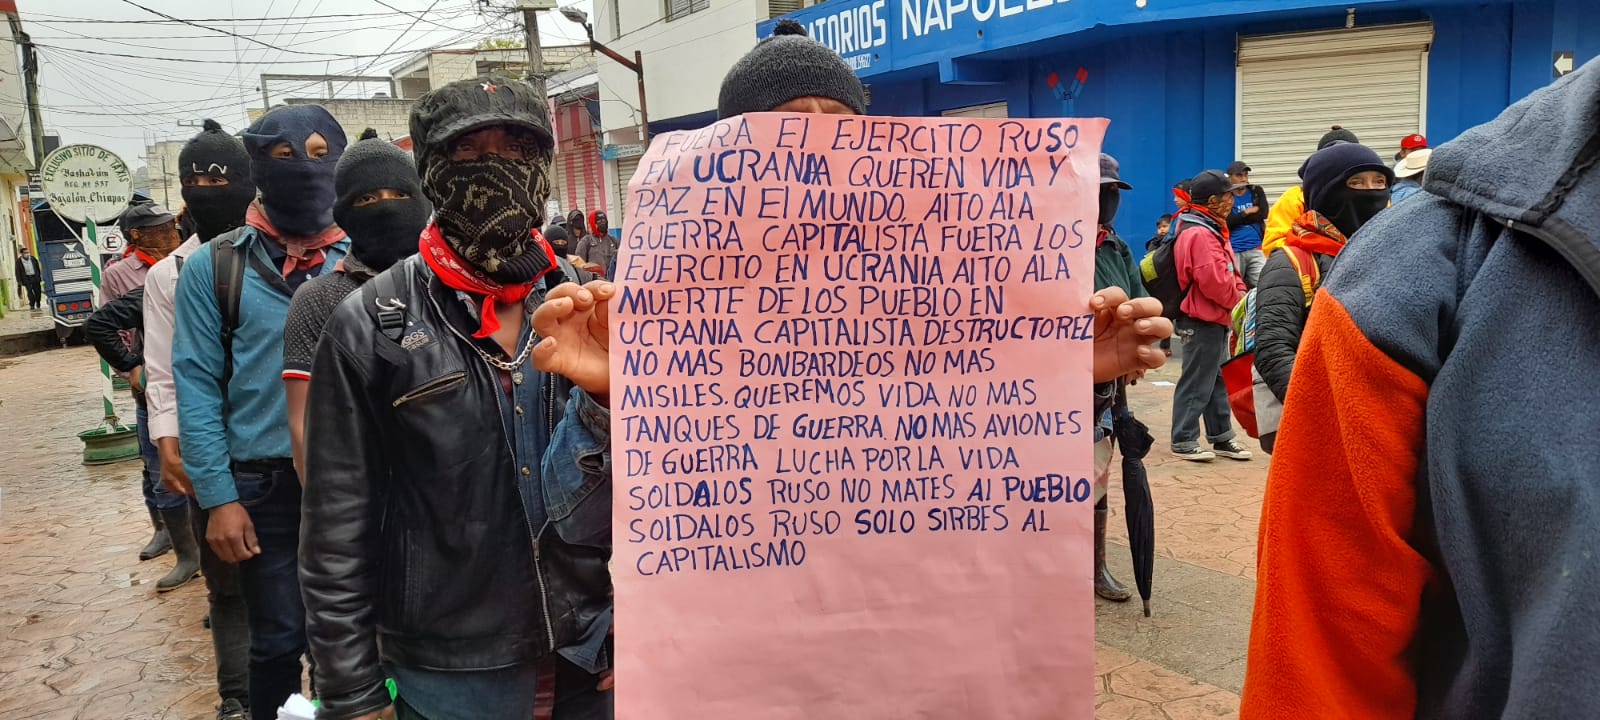 EXCLUSIVO SITIO DE TAXIS
Bashalúm
REG. Nº 597
Bajalón, Chiapas
E
ATORIOS NAPOLE
FUERA El EJERCITO RUSO
EN UCRANIA QUEREN VIDA Y
PAZ EN El MUNDO. AlTO ALA
GUERRA CAPITALISTA FUERA LOS
EJERCITO EN UCRANIA AlTO ALA
MUERTE DE LOS PUEBLO EN
UCRANIA CAPITALISTA DESTRUCTOREZ
NO MAS BONBARDEOS NO MAS
MISILES. QUEREMOS VIDA NO MAS
TANQUES DE GUERRA. NO MAS AVIONES
DE GUERRA LUCHA POR LA VIDA
SOLDALOS RUSO NO MATES Al PUEBLO
SOlDALOS RUSO SOLO SIRBES AL
CAPITALISMO